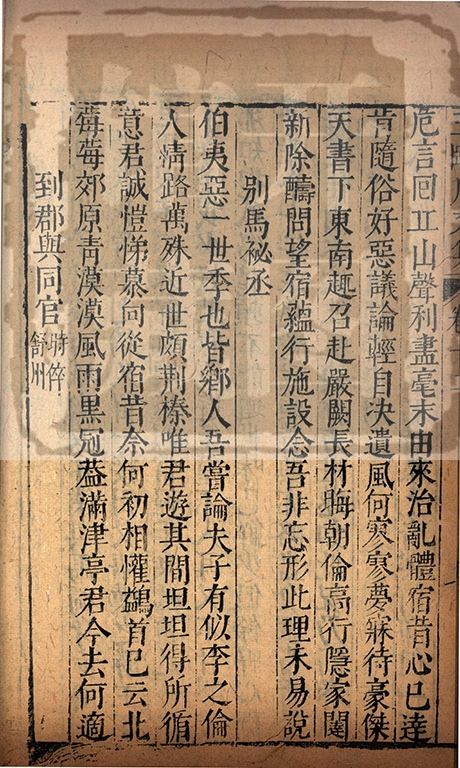 危言回丘山聲利盡毫末由來治亂體宿昔心已達
肯隨俗好惡議論輕自決遺風何寥寥夢寐待豪傑
天書下東南趣召赴嚴闕長材晦朝倫高行隱家闥
新除醻問望宿蘊行施設念吾非忘形此理未易說
別馬祕丞
伯夷惡一世季也皆鄉人吾嘗論夫子有似季之倫
人情路萬殊近世頗荆榛唯君遊其間坦坦得所循
意君誠愷悌慕向從宿昔奈何初相懽鷁首已云北
莓莓郊原青漠漠風雨黒冠葢滿津亭君今去何適
到郡與同官 時倅舒州